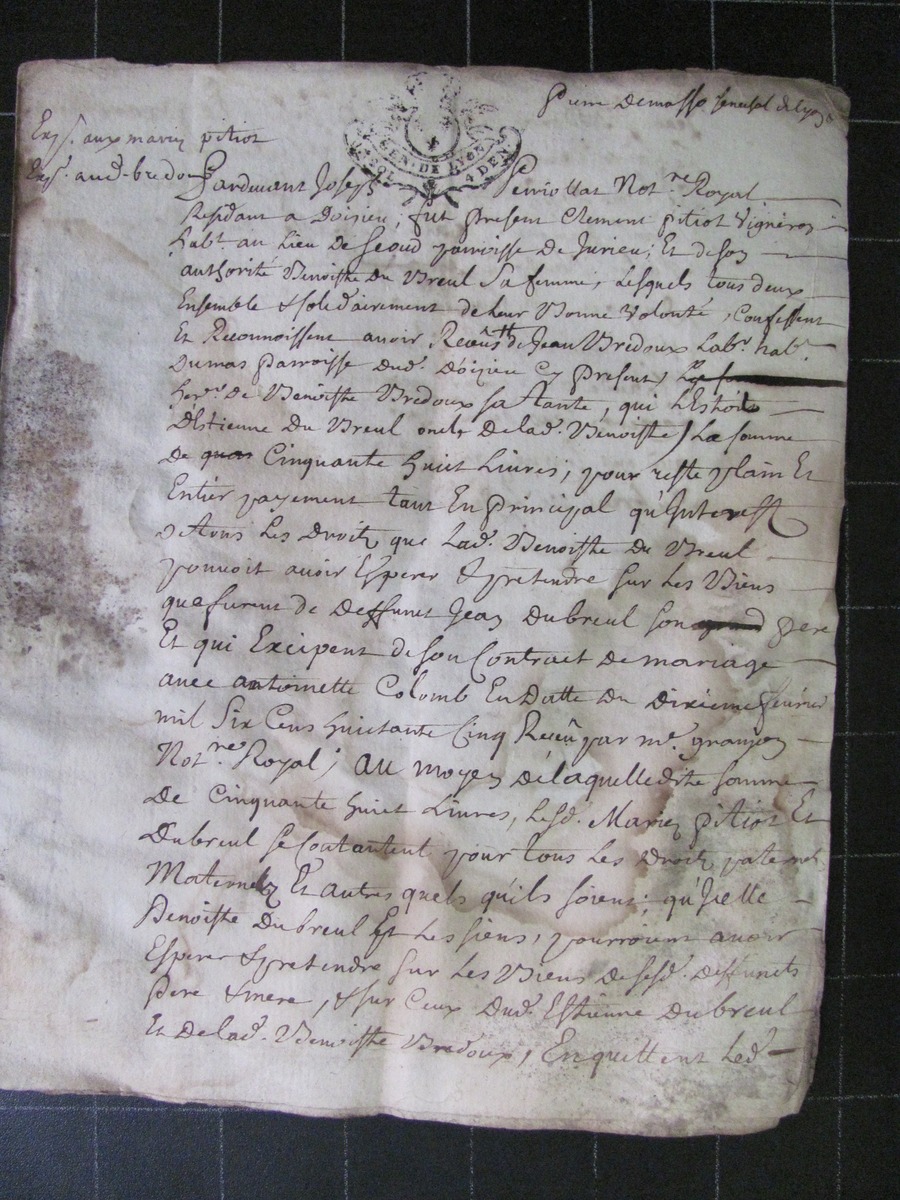 Pierre Demasso senechal de Lyon
Exp. aux mariez pitiot
Exp. aud. bredoux
GEN. DE LYON
SOL 4 DEN
Pardevant Joseph Perriollat Not.re Royal
Residant a doizieu, fut present Clement pitiot Vigneron
hab.t au Lieu De Seoud parroisse De Jurieu; Et de son
authorité Benoiste Du Breul Sa femme, Lesquels tous deux
Ensemble & solidairement de leur Bonne Volonté, Confessent
Et Reconnoissent avoir Receu de Jean Bredoux Lab.r hab.t
Dumas parroisse dud. doizieu cy present,
her.r de Benoiste Bredoux sa tante, qui L'Estoit
D'Estienne Du Breul oncle de lad. Benoiste) La somme
De Cinquante huict Livres, pour reste plain Et
Entier payement tant En principal qu'Interest
de tous Les droitz que Lad. Benoiste Du Breul
pouvoit avoir Esperer & pretendre sur Les Biens
que furent de Deffunct Jean Dubreul son grand pere
Et qui Excipent de son Contract de mariage
avec antoinette Colomb En Datte du dixieme fevrier
mil Six Cens huictante Cinq Receu par m.e granjon
Not.re Royal; au moyen de laquelle dite somme
De Cinquante huict Livres, Lesd. Mariez pitiot Et
Dubreul se contantent pour tous Les droitz paternels
Maternelz Et autres quels qu'ils soient; qu'Icelle
Benoiste Dubreul Et Les siens, pourroient avoir
Esperer & pretendre sur Les Biens de sesd. deffuncts
pere & mere, & sur Ceux dud. Estienne Dubreul
Et de lad. Benoiste Bredoux, En quittent Led.